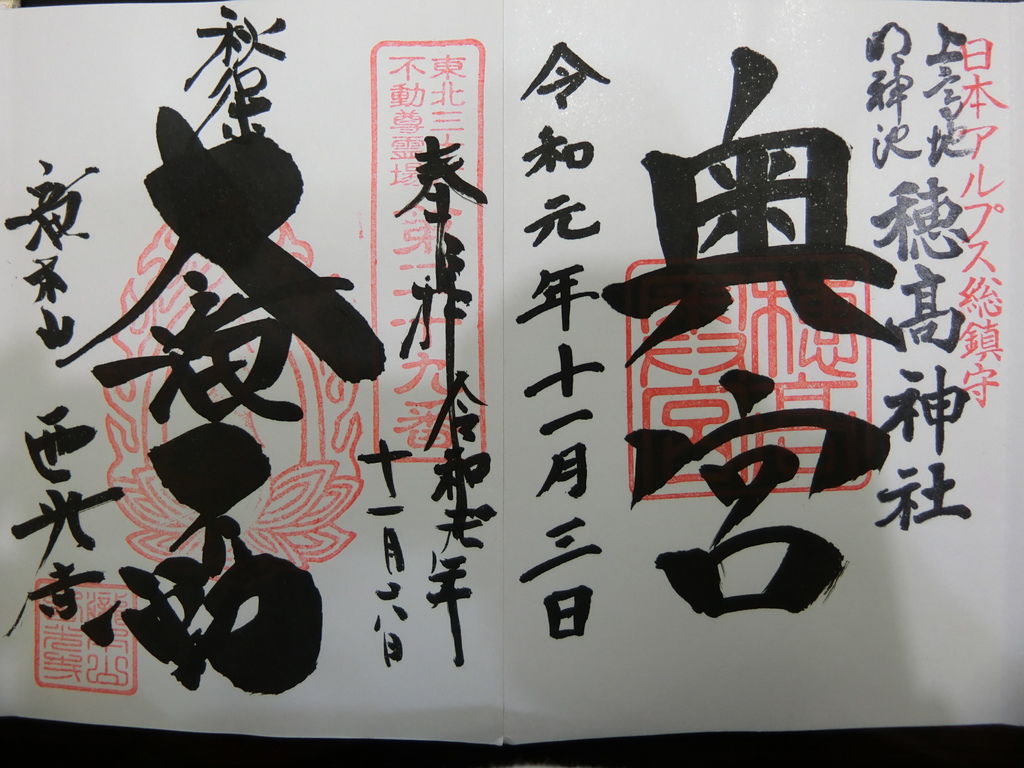 日本アルプス総鎮守
上高地
明神池
穂高神社
奥宮
令和元年十一月三日
東北三十六
不動尊霊場
第二十九番
奉拝
令和元年
十一月六日
秋保
大滝不動
滝本山
西光寺